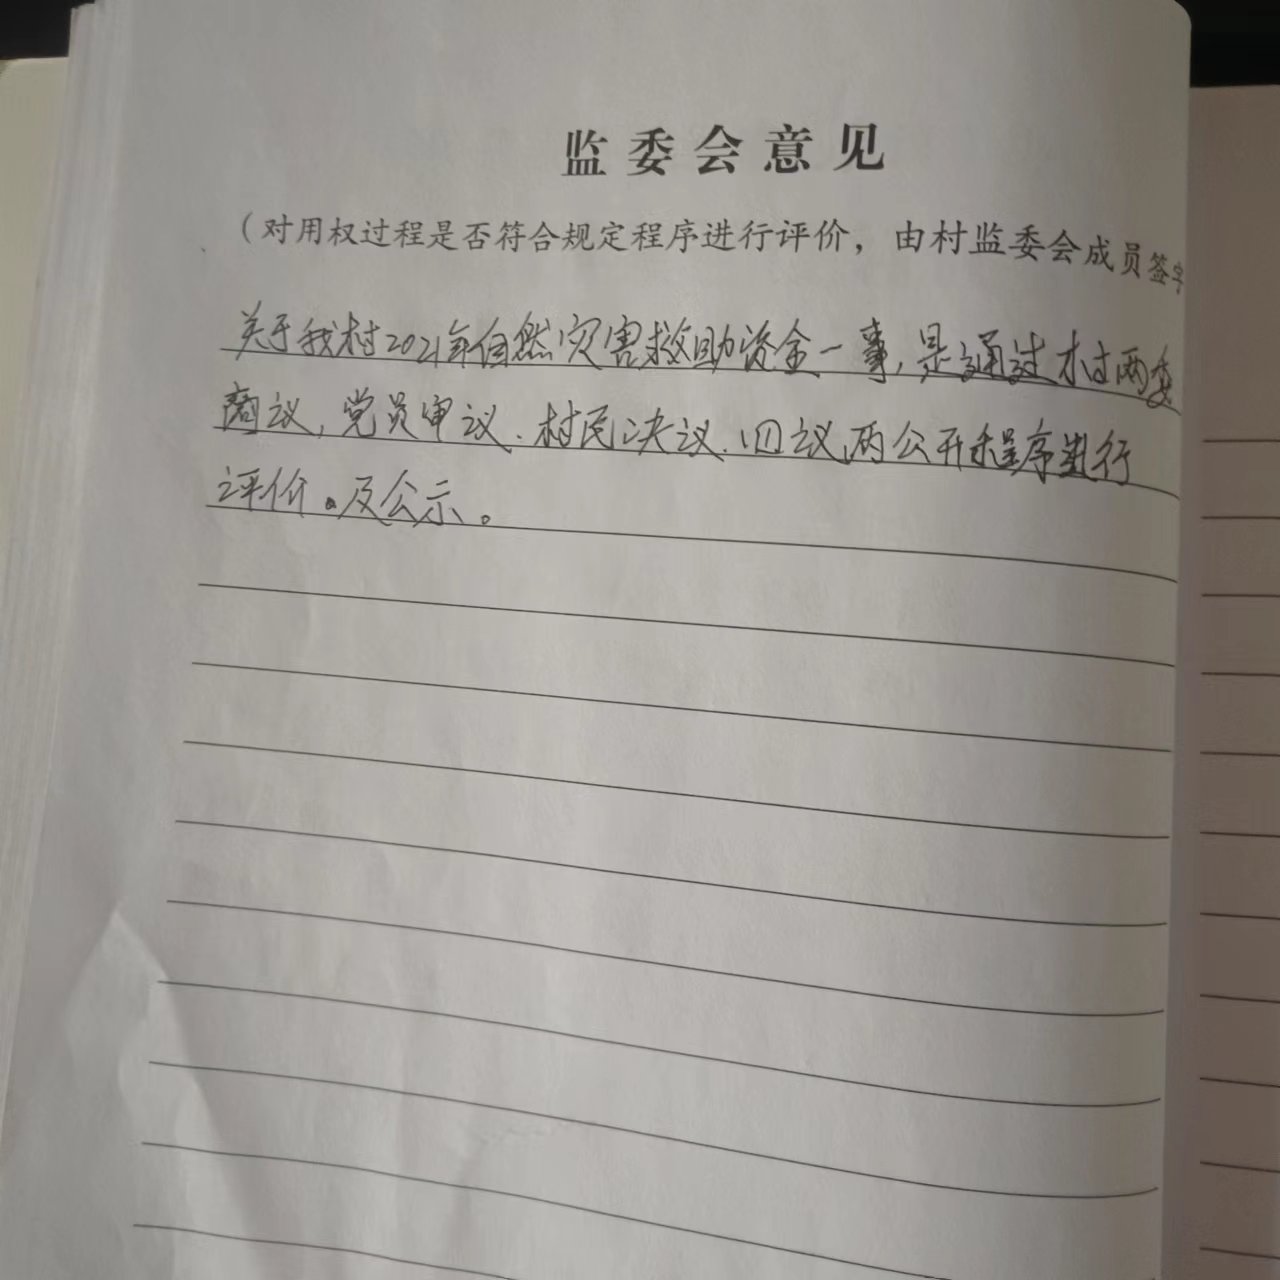 监委会意见
（对用权过程是否符合规定程序进行评价，由村监委会成员签字
关于我村2021年自然灾害救助资金一事，是通过村两委
商议，党员审议、村民决议、四议两公开程序进行
评价。及公示。